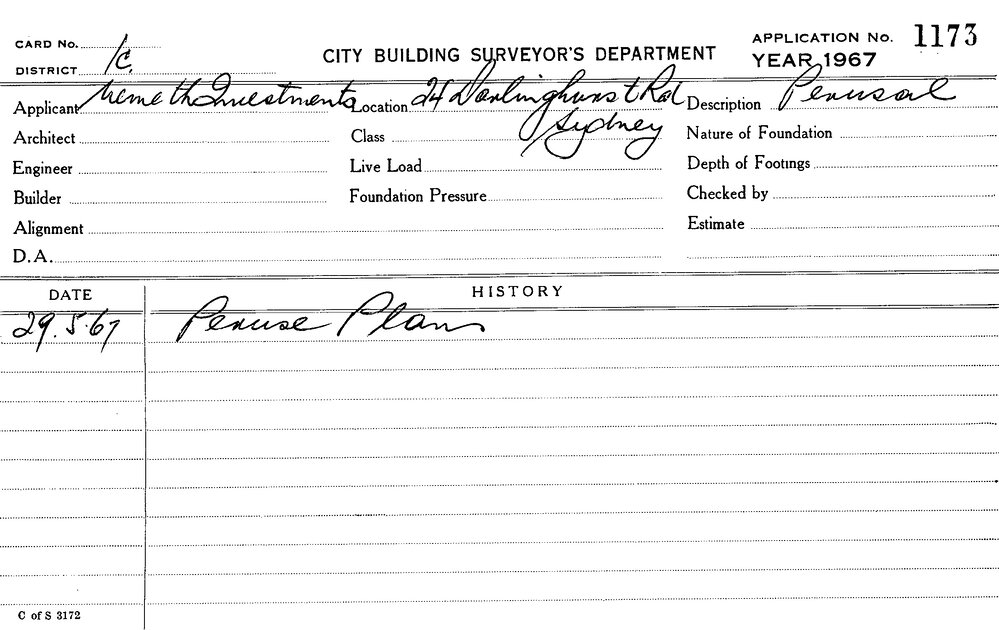 CARD No.
CITY BUILDING SURVEYOR'S DEPARTMENT
APPLICATION No. 1173
DISTRICT 1c.
YEAR 1967
Applicant Nemeth Investments Location 24 Darlinghurst Rd Description Perusal
Sydney
Architect Class Nature of Foundation
Engineer Live Load Depth of Footings
Builder Foundation Pressure Checked by
Alignment Estimate
D.A.
DATE HISTORY
29.5.67 Peruse Plans
C of S 3172